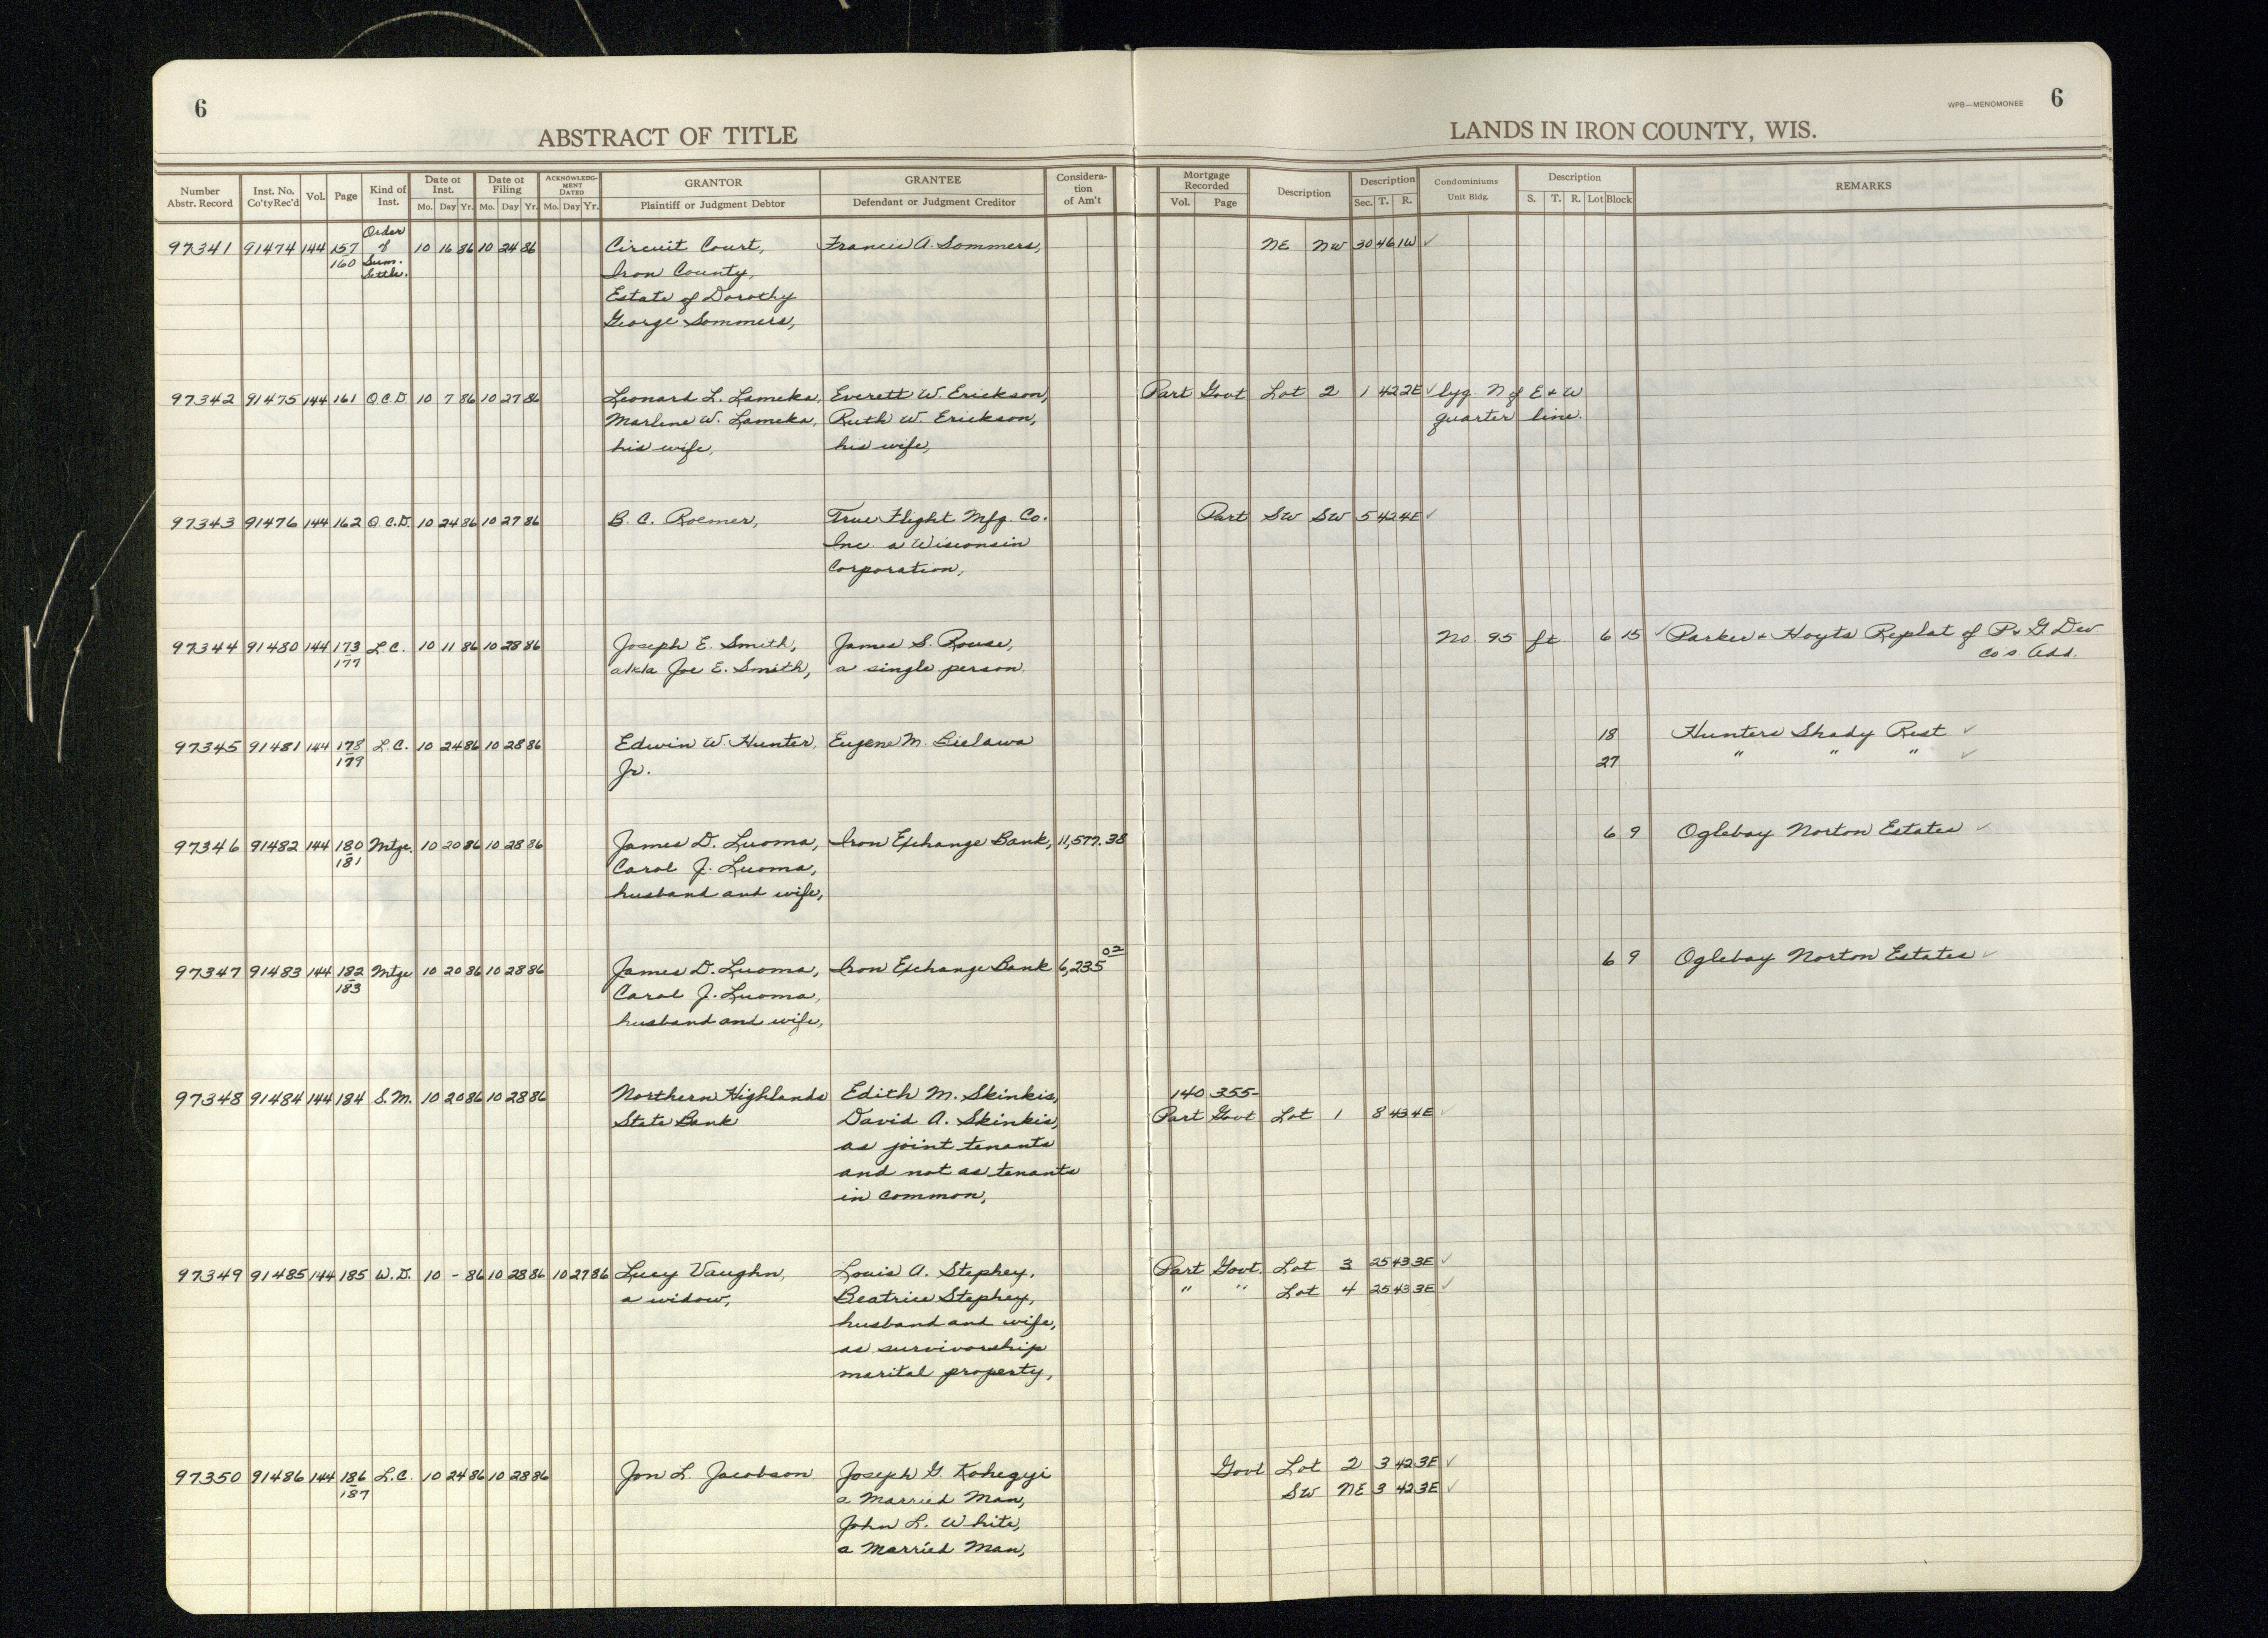 6
WPB—MENOMONEE 6
ABSTRACT OF TITLE
LANDS IN IRON COUNTY, WIS.
Number Abstr. Record | Inst. No. Co'tyRec'd | Vol. | Page | Kind of Inst. | Date of Inst. Mo. Day Yr. | Date of Filing Mo. Day Yr. | ACKNOWLEDGMENT DATED Mo. Day Yr. | GRANTOR Plaintiff or Judgment Debtor | GRANTEE Defendant or Judgment Creditor | Consideration of Am't | Mortgage Recorded Vol. Page | Description | Description Sec. T. R. | Condominiums Unit Bldg. | Description S. T. R. Lot Block | REMARKS
97341 91474 144 157/160 Order of Sum. Settle. 10 16 86 10 24 86 Circuit Court, Francis A. Sommers, NE NW 30 46 1W ✓
Iron County,
Estate of Dorothy
George Sommers,
97342 91475 144 161 Q.C.D. 10 7 86 10 27 86 Leonard L. Lameka, Everett W. Erickson, Part Govt Lot 2 1 42 2E ✓ lyg. N of E & W
Marlene W. Lameka, Ruth W. Erickson, quarter line.
his wife, his wife,
97343 91476 144 162 Q.C.D. 10 24 86 10 27 86 B. C. Roemer, True Flight Mfg. Co. Part SW SW 5 42 4E ✓
Inc. a Wisconsin
Corporation,
97344 91480 144 173/177 L.C. 10 11 86 10 28 86 Joseph E. Smith, James S. Rouse, No 95 ft. 6 15 ✓ Parker & Hoyts Replat of P. & G. Dev
a/k/a Joe E. Smith, a single person. Co's. Add.
97345 91481 144 178/179 L.C. 10 24 86 10 28 86 Edwin W. Hunter, Eugene M. Bielawa 18 Hunters Shady Rest ✓
Jr. 27 " " " ✓
97346 91482 144 180/181 Mtge. 10 20 86 10 28 86 James D. Luoma, Iron Exchange Bank, 11,577.38 6 9 Oglebay Norton Estates ✓
Carol J. Luoma,
husband and wife,
97347 91483 144 182/183 Mtge 10 20 86 10 28 86 James D. Luoma, Iron Exchange Bank 6,235 02 6 9 Oglebay Norton Estates ✓
Carol J. Luoma,
husband and wife,
97348 91484 144 184 S.M. 10 20 86 10 28 86 Northern Highlands Edith M. Skinkis, 140 355-
State Bank David A. Skinkis, Part Govt Lot 1 8 43 4E ✓
as joint tenants
and not as tenants
in common,
97349 91485 144 185 W.D. 10 - 86 10 28 86 10 27 86 Lucy Vaughn, Louis A. Stephey, Part Govt. Lot 3 25 43 3E ✓
a widow, Beatrice Stephey, " " Lot 4 25 43 3E ✓
husband and wife,
as survivorship
marital property,
97350 91486 144 186/187 L.C. 10 24 86 10 28 86 Jon L. Jacobson Joseph G. Kohegyi Govt Lot 2 3 42 3E ✓
a Married Man, SW NE 3 42 3E ✓
John L. White,
a Married Man,